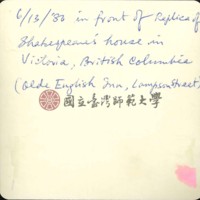 6/13/'80 in front of Replica of
Shakespeare's house in
Victoria, British Columbia
(Olde English Inn, Lampson Street)
國立臺灣師範大學